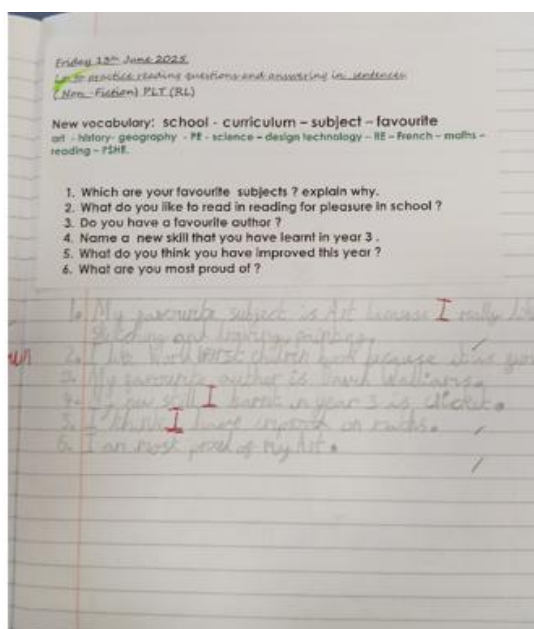 Friday 13th June 2025
Lo: to practice reading questions and answering in sentences
(Non-Fiction) PLT (RL)
New vocabulary: school - curriculum – subject – favourite
art - history- geography - PE - science – design technology – RE – French – maths –
reading – PSHE.
1. Which are your favourite subjects ? explain why.
2. What do you like to read in reading for pleasure in school ?
3. Do you have a favourite author ?
4. Name a new skill that you have learnt in year 3 .
5. What do you think you have improved this year ?
6. What are you most proud of ?
1. My favourite subject is Art because I really
and painting.
2. I like World Worst children book because it is
3. My favourite author is David Walliams.
4. My new skill I learnt in year 3 is cricket.
5. I think I have improve on maths.
6. I am most proud of my Art.